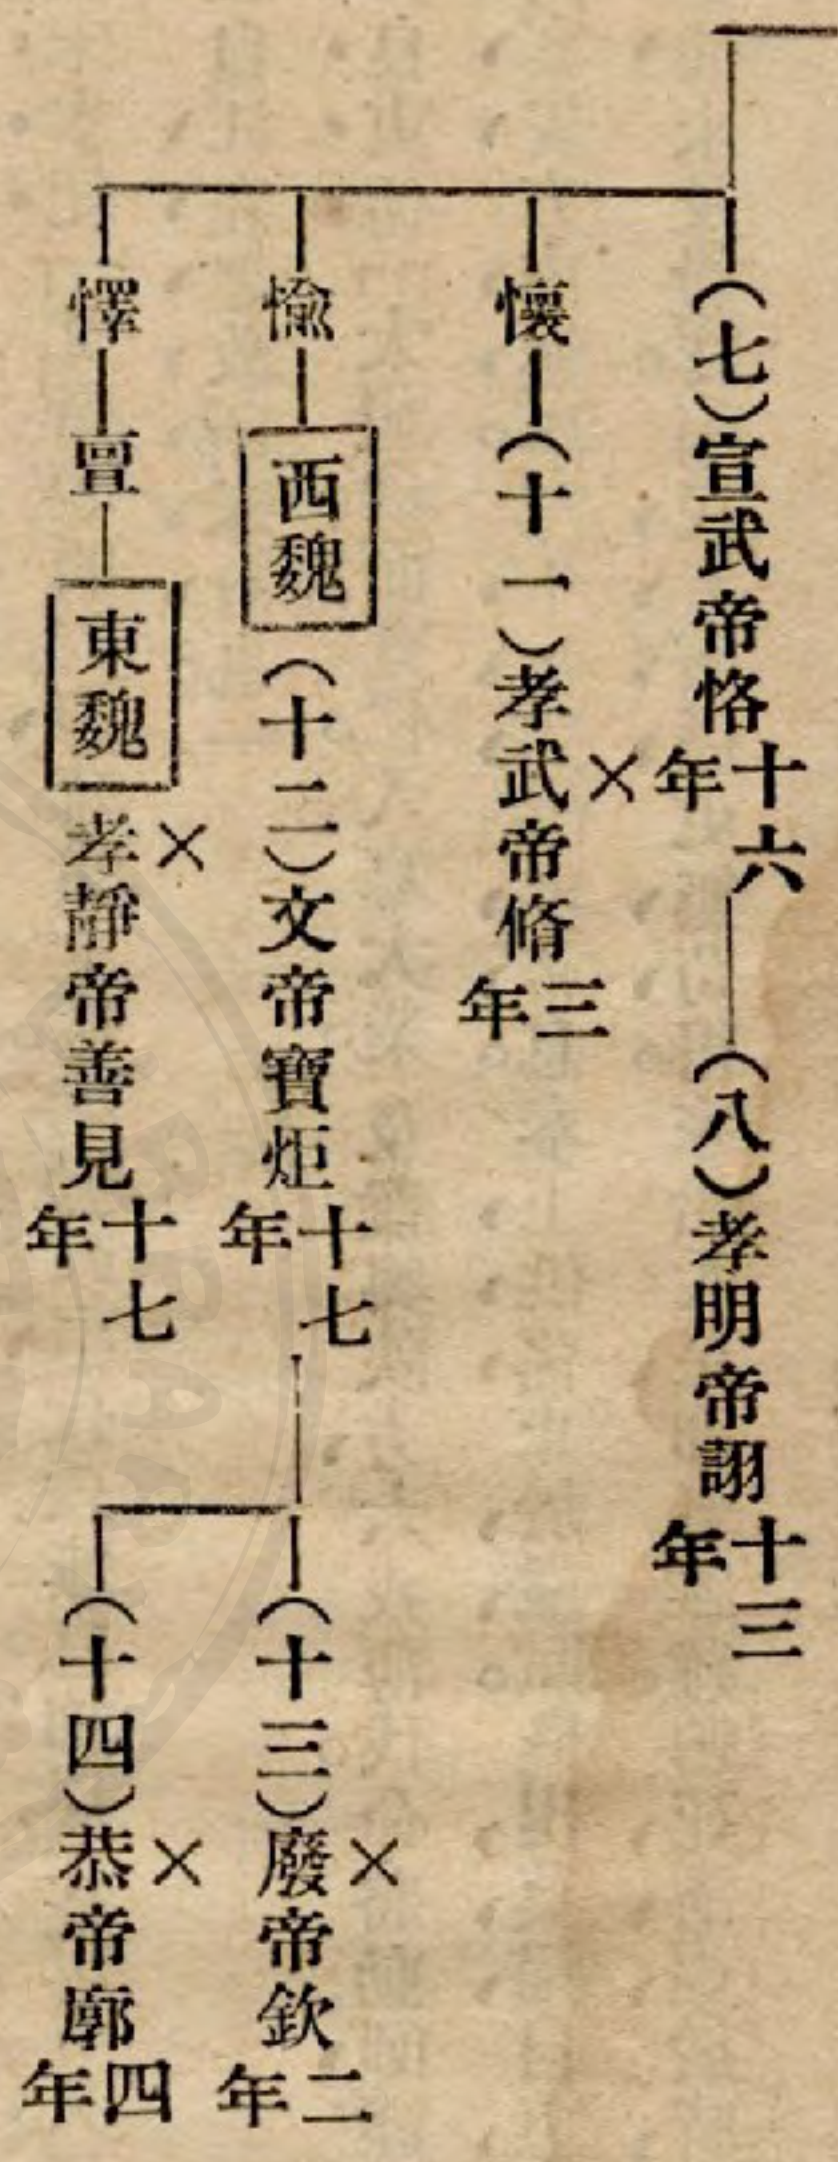 (七)宣武帝恪十六年
(八)孝明帝詡十三年
懷
(十一)孝武帝脩三年
×
愉
西魏
(十二)文帝寶炬十七年
(十三)廢帝欽二年
×
(十四)恭帝廓四年
×
懌
亶
東魏
孝靜帝善見十七年
×